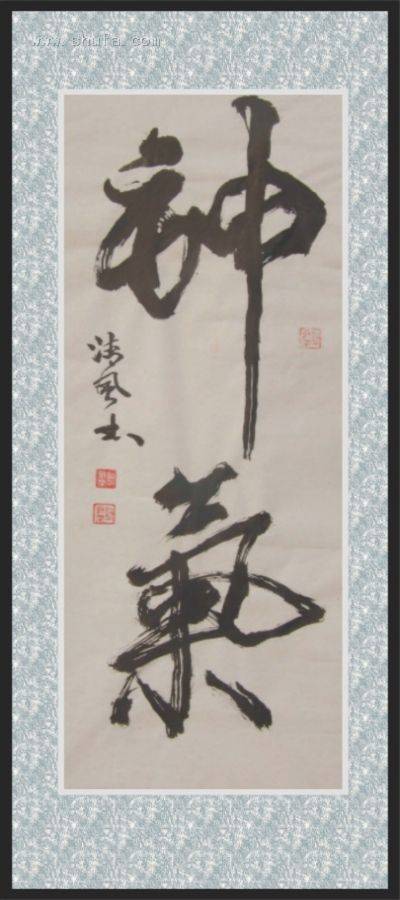 www.chufa.com
神氣
清风书